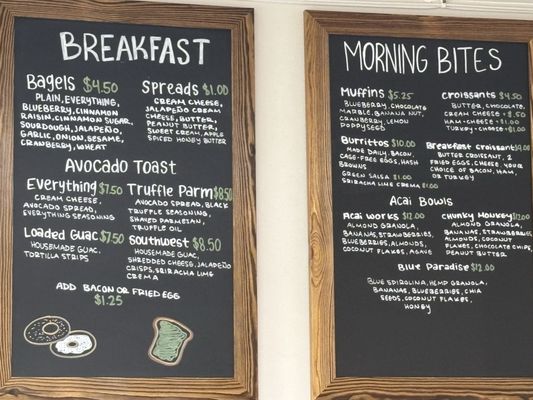 BREAKFAST
Bagels $4.50
PLAIN, EVERYTHING,
BLUEBERRY, CINNAMON
RAISIN, CINNAMON SUGAR,
SOURDOUGH, JALAPEÑO,
GARLIC, ONION, SESAME,
CRANBERRY, WHEAT
Spreads $1.00
CREAM CHEESE,
JALAPEÑO CREAM
CHEESE, BUTTER,
PEANUT BUTTER,
SWEET CREAM, APPLE
SPICED HONEY BUTTER
AVOCADO TOAST
Everything $7.50
CREAM CHEESE,
AVOCADO SPREAD,
EVERYTHING SEASONING
Truffle Parm $8.50
AVOCADO SPREAD, BLACK
TRUFFLE SEASONING,
SHAVED PARMESAN,
TRUFFLE OIL
Loaded Guac $7.50
HOUSEMADE GUAC,
TORTILLA STRIPS
Southwest $8.50
HOUSEMADE GUAC,
SHREDDED CHEESE, JALAPEÑO
CRISPS, SRIRACHA LIME
CREMA
ADD BACON OR FRIED EGG
$1.25
MORNING BITES
Muffins $5.25
BLUEBERRY, CHOCOLATE
MARBLE, BANANA NUT,
CRANBERRY, LEMON
POPPYSEED
Croissants $4.50
BUTTER, CHOCOLATE,
CREAM CHEESE + $.50
HAM + CHEESE + $1.00
TURKEY + CHEESE + $1.00
Burrittos $10.00
MADE DAILY, BACON,
CAGE-FREE EGGS, HASH
BROWNS
GREEN SALSA $1.00
SRIRACHA LIME CREMA $1.00
Breakfast Croissant $9.00
BUTTER CROISSANT, 2
FRIED EGGS, CHEESE, YOUR
CHOICE OF BACON, HAM,
OR TURKEY
ACAI BOWLS
Acai Works $12.00
ALMOND GRANOLA,
BANANAS, STRAWBERRIES,
BLUEBERRIES, ALMONDS,
COCONUT FLAKES, AGAVE
Chunky Monkey $12.00
ALMOND GRANOLA,
BANANAS, STRAWBERRIES
ALMONDS, COCONUT
FLAKES, CHOCOLATE CHIPS,
PEANUT BUTTER
Blue Paradise $12.00
BLUE SPIRULINA, HEMP GRANOLA,
BANANAS, BLUEBERRIES, CHIA
SEEDS, COCONUT FLAKES,
HONEY